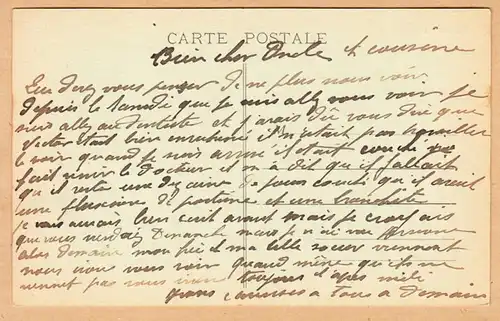 CARTE POSTALE
Bien cher Oncle et cousine
que devez vous penser de ne plus nous voir
depuis le samedi que je suis allez vous voir je
suis allez au dentiste et j'avais dû vous dire que
Victor était bien enrhumé il n'était pas
le voir quand je suis arrivé il était couché
fait venir le docteur et m'a dit qu'il fallait
qu'il reste une dizaine de jours couché qu'il avait
une fluxion de poitrine et une bronchite
je vous aurais bien écrit avant mais je croyais
que vous viendrez Dimanche mais je n'ai vu Personne
alors demain mon fils et ma belle sœur viennent
nous irons vous voir quand même qu'ils ne
viennent pas vous voir toujours l'après midi
grosses caresses a tous a demain